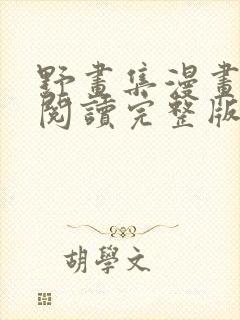 野畫集漫畫
閱讀完整版
胡學文